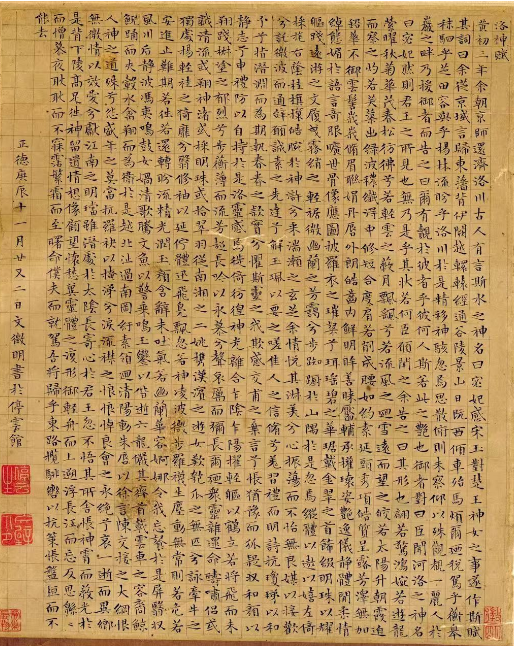 洛神賦
黃初三年余朝京師還濟洛川古人有言斯水之神名曰宓妃感宋玉對楚王神女之事遂作斯賦
其詞曰余從京域言歸東藩背伊闕越轘轅經通谷陵景山日既西傾車殆馬煩爾迺稅駕乎蘅皋
秣駟乎芝田容與乎楊林流眄乎洛川於是精移神駭忽焉思散俯則未察仰以殊觀覩一麗人於
巖之畔乃援御者而告之曰爾有覿於彼者乎彼何人斯若此之艷也御者對曰臣聞河洛之神名
曰宓妃然則君王之所見也無乃是乎其狀若何臣願聞之余告之曰其形也翩若驚鴻婉若遊龍
榮曜秋菊華茂春松彷彿兮若輕雲之蔽月飄颻兮若流風之迴雪遠而望之皎若太陽升朝霞迫
而察之灼若芙蕖出綠波穠纖得中修短合度肩若削成腰如約素延頸秀項皓質呈露芳澤無加
鉛華不御雲髻峨峨脩眉聯娟丹唇外朗皓齒內鮮明眸善睞靨輔承權瓌姿艷逸儀靜體閑柔情
綽態媚於語言奇服曠世骨像應圖披羅衣之璀粲兮珥瑤碧之華琚戴金翠之首飾綴明珠以耀
軀踐遠遊之文履曳霧綃之輕裾微幽蘭之芳藹兮步踟躕於山隅於是忽焉縱體以遨以嬉左倚
采旄右蔭桂旗攘皓腕於神滸兮采湍瀨之玄芝余情悅其淑美兮心振蕩而不怡無良媒以接歡
兮託微波而通辭願誠素之先達兮解玉珮以要之嗟佳人之信修兮羌習禮而明詩抗瓊珶以和
予兮指潛淵而為期執眷眷之款實兮懼斯靈之我欺感交甫之棄言兮悵猶豫而狐疑收和顏以
靜志兮申禮防以自持於是洛靈感焉徙倚彷徨神光離合乍陰乍陽擢輕軀以鶴立若將飛而未
翔踐椒塗之郁烈兮步蘅薄而流芳超長吟以永慕兮聲哀厲而彌長爾迺眾靈雜遝命儔嘯侶或
戲清流或翔神渚或採明珠或拾翠羽從南湘之二妃攜漢濱之遊女歎匏瓜之無匹兮詠牽牛之
獨處揚輕袿之猗靡兮翳修袖以延佇體迅飛鳧飄忽若神凌波微步羅襪生塵動無常則若危若
安進止難期若往若還轉眄流精光潤玉顏含辭未吐氣若幽蘭華容婀娜令我忘餐於是屏翳收
風川后靜波馮夷鳴鼓女媧清歌騰文魚以警乘鳴玉鸞以偕逝六龍儼其齊首載雲車之容裔鯨
鯢踴而夾轂水禽翔而為衛於是越北沚過南岡紆素領迴清陽動朱唇以徐言陳交接之大綱恨
人神之道殊兮怨盛年之莫當抗羅袂以掩涕兮淚流襟之浪浪悼良會之永絕兮哀一逝而異鄉
無微情以效愛兮獻江南之明璫雖潛處於太陰長寄心於君王忽不悟其所舍悵神霄而蔽光於
是背下陵高足往神留遺情想像顧望懷愁冀靈體之復形御輕舟而上溯浮長江而忘反思綿綿
而增慕夜耿耿而不寐霑繁霜而至曙命僕夫而就駕吾將歸乎東路攬騑轡以抗策悵盤桓而不
能去
正德庚辰十一月廿又二日文徵明書於停雲館